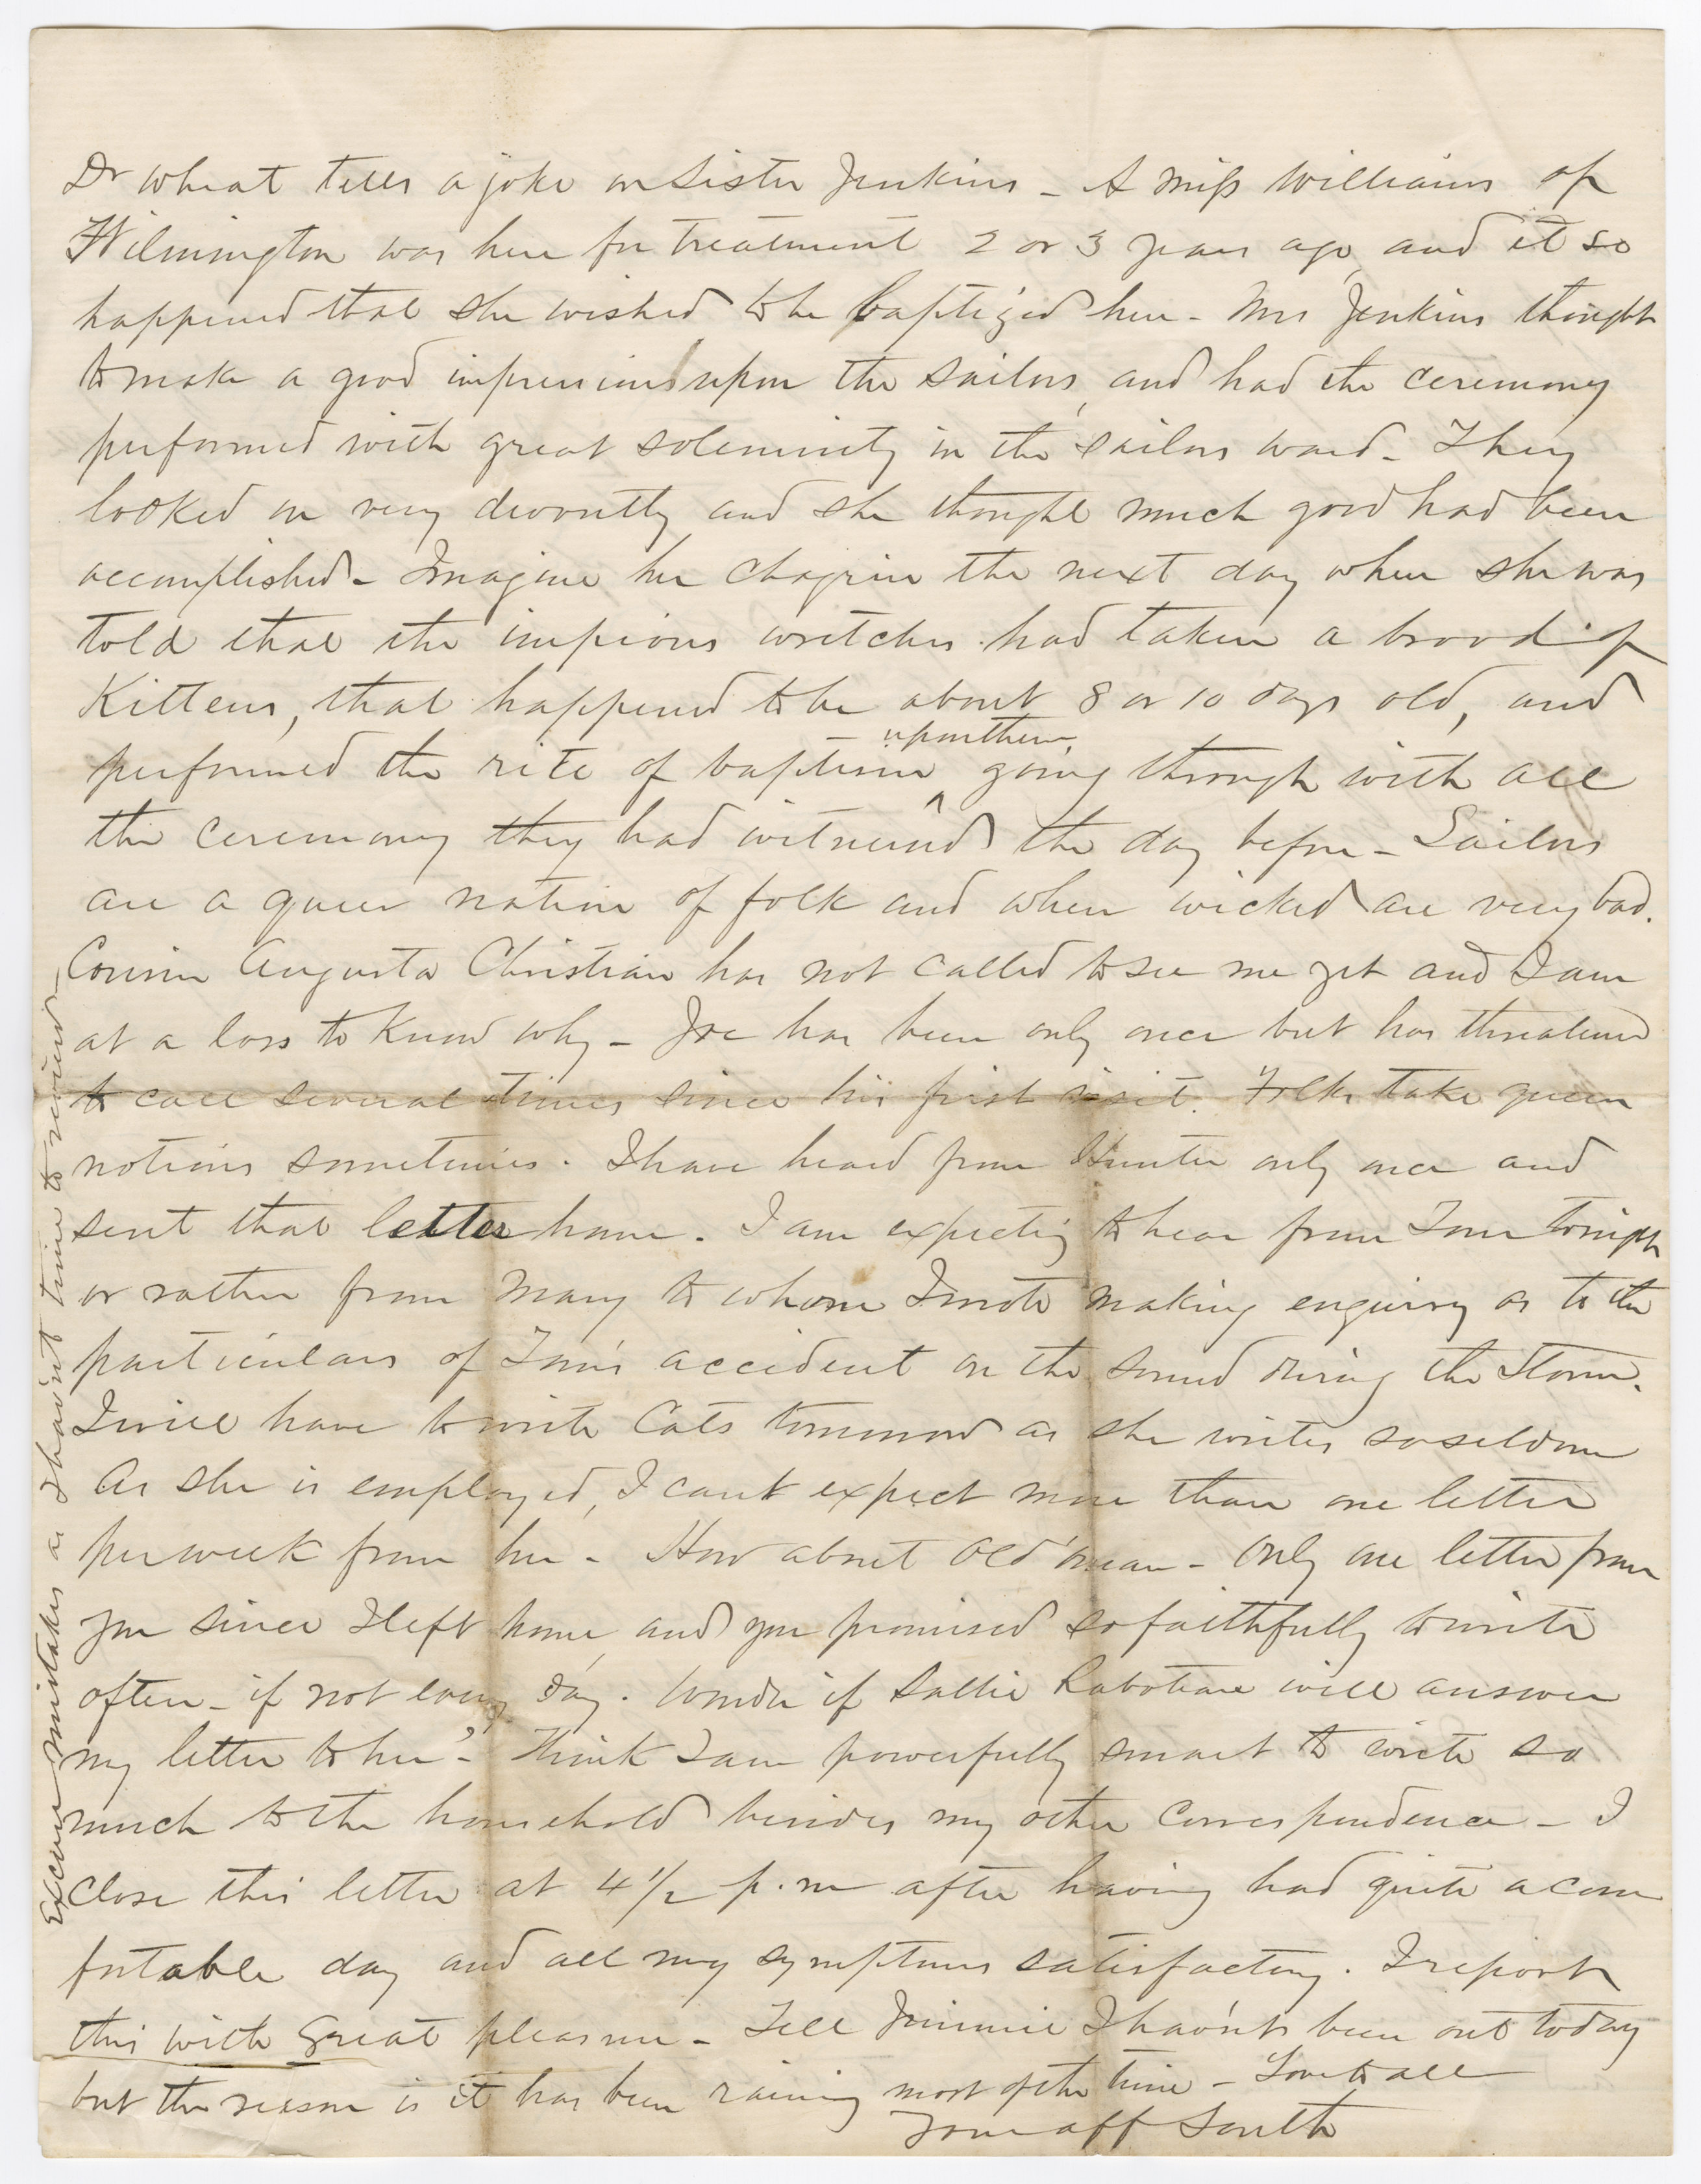 Dr Wheat tells a joke on Sister Jenkins - A Miss Williams of
Wilmington was here for treatment 2 or 3 years ago, and it so
happened that she wished to be baptized here - Mrs Jenkins thought
to make a good impression upon the sailors, and had the ceremony
performed with great solemnity in the sailors ward - They
looked on very devoutly and she thought much good had been
accomplished - Imagine her chagrin the next day when she was
told that the impious wretches had taken a brood of
Kittens, that happened to be about 8 or 10 days old, and
performed the rite of baptism upon them, going through with all
the ceremony they had witnessed the day before - Sailors
are a queer nation of folk and when wicked are very bad.
Cousin Augusta Christian has not called to see me yet and I am
at a loss to know why - Joe has been only once but has threatened
to call several times since his first visit. Folks take queer
notions sometimes. I have heard from Hunter only once and
sent that letter home. I am expecting to hear from Tom tonight
or rather from Mary to whom I wrote making enquiry as to the
particulars of Tom's accident on the Sound during the Storm.
I will have to write Cats tomorrow as she writes so seldom
As she is employed, I can't expect more than one letter
per week from her - How about old 'oman - Only one letter from
you since I left home, and you promised so faithfully to write
often - if not every day. Wonder if Sallie will answer
my letter to her? - Think I am powerfully smart to write so
much to the household besides my other correspondence - I
close this letter at 4 1/2 p.m after having had quite a com
fortable day and all my symptoms satisfactory. I report
this with great pleasure - Tell Jimmie I hav'nt been out today
but the reason is it has been raining most of the time - Love to all
Your aff South
Excuse mistakes as I hav'nt time to review -